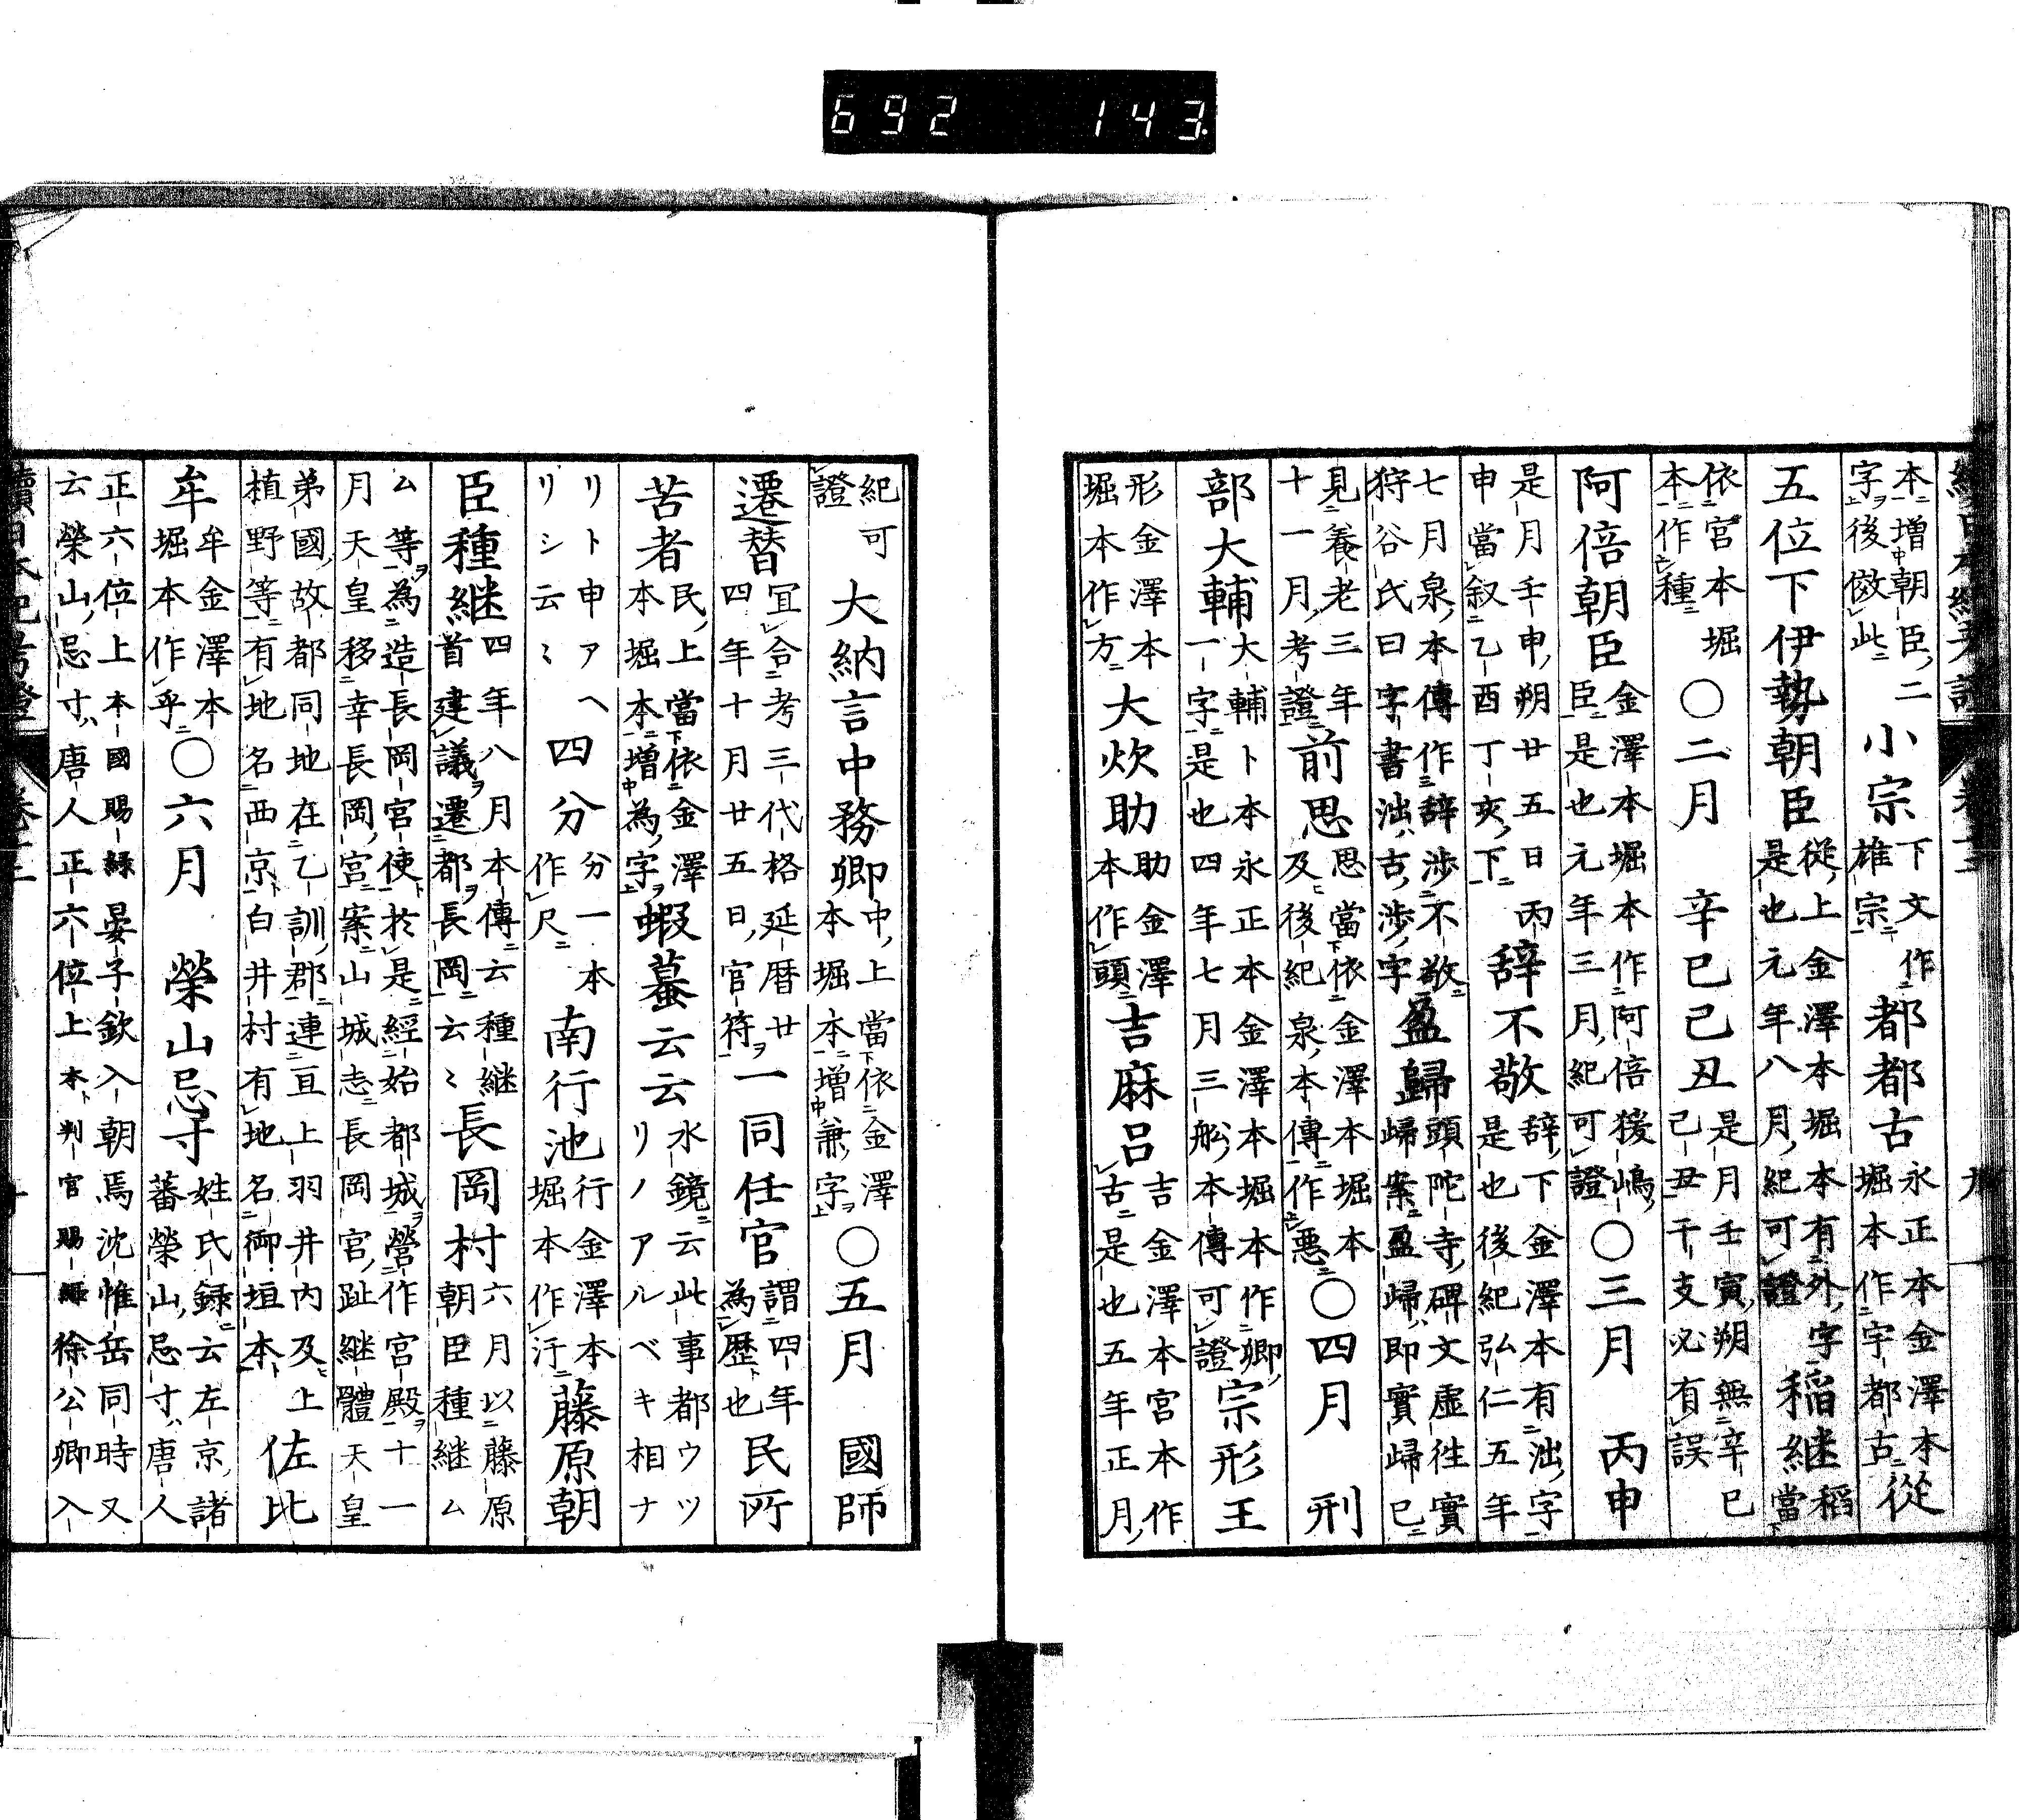 692 143.
本増朝臣二字後倣此 小宗 下文作雄宗 都都古 永正本金澤本堀本作宇都古 從
五位下伊勢朝臣 從上金澤本堀本有外字是也元年八月紀可證 稲継 稻當
依宮本堀本作種 ○二月 辛巳己丑 是月壬寅朔無辛巳己丑干支必有誤
阿倍朝臣 金澤本堀本作阿倍猨嶋臣是也元年三月紀可證 ○三月 丙申
是月壬申朔廿五日丙申當叙乙酉丁亥下 辞不敬 辞下金澤本有泏字是也後紀弘仁五年
七月泉本傳作辞渉不敬狩谷氏曰字書泏古渉字 盈歸 頭陀寺碑文虚往實歸案盈歸即實歸已
見養老三年十一月考證 前思 思當依金澤本堀本及後紀泉本傳作悪 ○四月 刑
部大輔 大輔卜本永正本金澤本堀本作卿一字是也四年七月三舩本傳可證 宗形王
形金澤本堀本作方 大炊助 助金澤本作頭 吉麻呂 吉金澤本宮本作古是也五年正月
紀可證 大納言中務卿 中上當依金澤本堀本増兼字 ○五月 國師
遷替 宜合考三代格延暦廿四年十月廿五日官符 一同任官 謂四年為歴也 民所
苦者 民上當依金澤本堀本増為字 蝦蟇云云 水鏡云此事都ウツリノアルベキ相ナ
リト申アヘリシ云〻 四分 分一本作尺 南行池 行金澤本堀本作汙 藤原朝
臣種継 四年八月本傳云種継首建議遷都長岡云〻 長岡村 六月以藤原朝臣種継ム
ム等為造長岡宮使於是經始都城營作宮殿十一月天皇移幸長岡宮案山城志長岡宮趾継體天皇
弟國故都同地在乙訓郡連亘上羽井内及上植野等有地名西京白井村有地名御垣本 佐比
牟 牟金澤本堀本作乎 ○六月 榮山忌寸 姓氏録云左京諸蕃榮山忌寸唐人
正六位上本國賜緑晏子欽入朝焉沈惟岳同時又云榮山忌寸唐人正六位上本判官賜緑徐公卿入